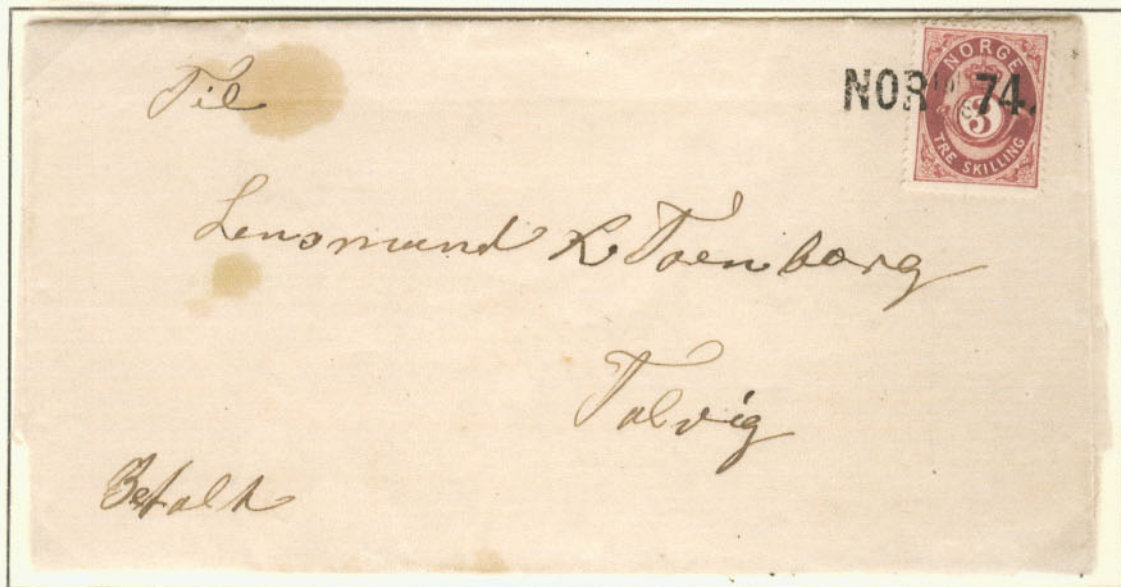 Til
NORGE
NOR 74.
3
TRE SKILLING
Lensmand L Toenborg
Talvig
Betalt